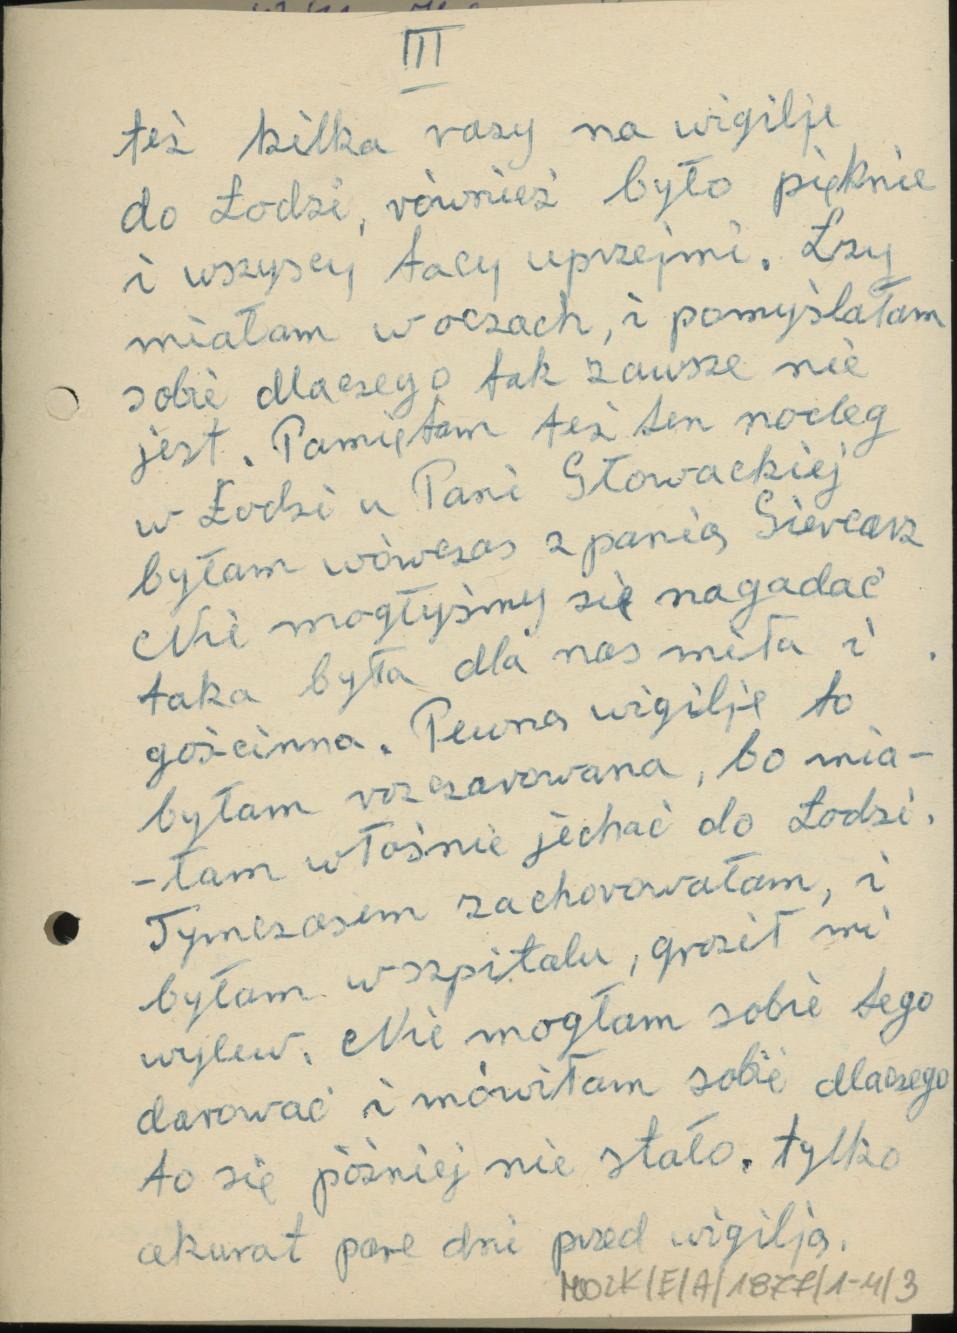 III
też kilka razy na wigilję
do Łodzi, również było pięknie
i wszyscy tacy uprzejmi. Łzy
miałam w oczach, i pomyślałam
sobie dlaczego tak zawsze nie
jest. Pamiętam też ten nocleg
w Łodzi u Pani Głowackiej
byłam wówczas z panią Giercarz
Nie mogłyśmy się nagadać
taka była dla nas miła i
gościnna. Pewną wigilję to
byłam rozczarowana, bo mia-
-łam właśnie jechać do Łodzi.
Tymczasem zachorowałam, i
byłam w szpitalu, groził mi
wylew. Nie mogłam sobie tego
darować i mówiłam sobie dlaczego
to się później nie stało. tylko
akurat parę dni przed wigilją.
MOZK/E/A/1877/1-4/3